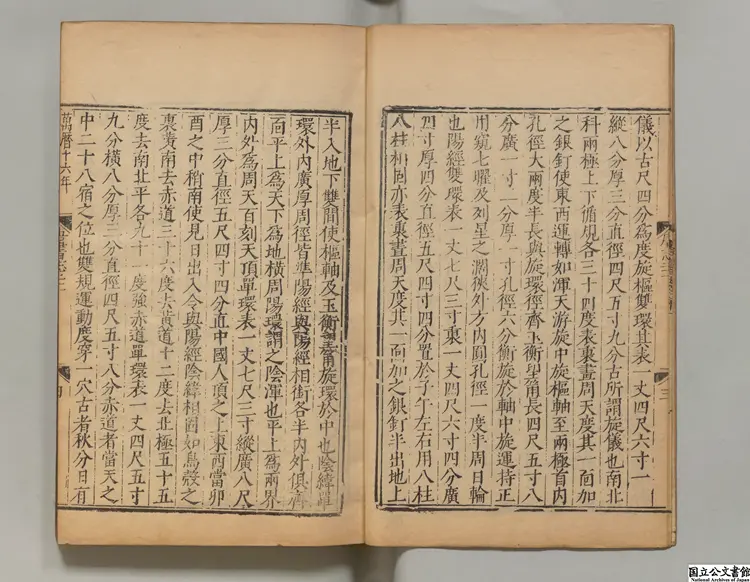 儀以古尺四分爲度旋樞雙環其表一丈四尺六寸一
縱八分厚三分直徑四尺五寸九分古所謂旋儀也南北
科兩極上下循規各三十四度表裏畫周天度其一面加
之銀釘使東西運轉如渾天游旋中旋樞軸至兩極首内
孔徑大兩度半長與旋環徑齊玉衡望筩長四尺五寸八
分廣一寸二分厚一寸孔徑六分衡旋於軸中旋運持正
用窺七曜及列星之濶狹外方内圓孔徑一度半周日輪
也陽經雙環表一丈七尺三寸裏一丈四尺六寸四分廣
四寸厚四分直徑五尺四寸四分置於子午左右用八柱
八柱相固亦表裏畫周天度其一面加之銀釘半出地上
半入地下雙間使樞軸及玉衡望筩旋環於中也陰緯單
環外内廣厚周徑皆準陽經與陽經相銜各半内外俱齊
面平上爲天下爲地橫周陽環謂之陰渾也平上爲兩界
内外爲周天百刻天頂單環表一丈七尺三寸縱廣八尺
厚三分直徑五尺四寸四分直中國人頂之上東西當卯
酉之中稍南使見日出入令與陽經陰緯相固如鳥殻之
裏黄南去赤道三十六度去黄道十二度去北極五十五
度去南北平各九十一度強赤道單環表一丈四尺五寸
九分橫八分厚三分直徑四尺五寸八分赤道者當天之
中二十八宿之位也雙規運動度穿一穴古者秋分日有
萬曆十六年
國立公文書館
National Archives of Japan